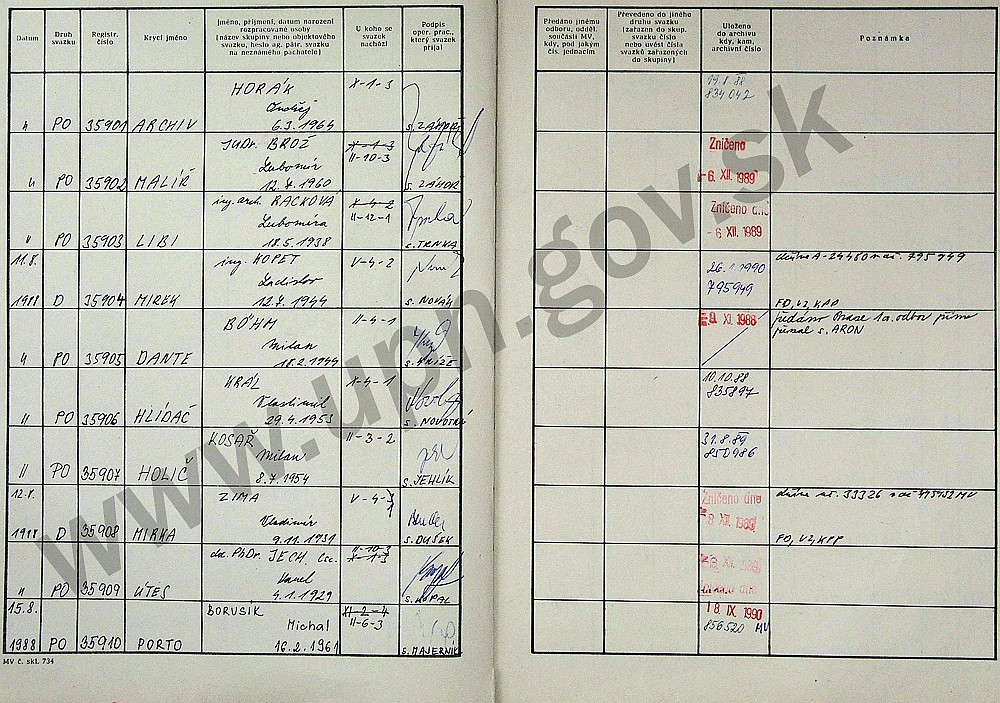 Datum
Druh
svazku
Registr.
číslo
Krycí jméno
Jméno, příjmení, datum narození
rozpracované osoby
(název skupiny nebo objektového
svazku, heslo ag. pátr. svazku
na neznámého pachatele)
U koho se
svazek
nachází
Podpis
oper. prac.,
který svazek
přijal
Předáno jinému
odboru, odděl.
součásti MV,
kdy, pod jakým
čís. jednacím
Převedeno do jiného
druhu svazku
(zařazen do skup.
svazku číslo
nebo uvést čísla
svazků zařazených
do skupiny)
Uloženo
do archivu
kdy, kam,
archivní číslo
Poznámka
HORÁK X-1-3 19.8.88
Ondřej 834042
" PO 35901 ARCHIV 6.3.1964 s. ZÁHOŘ
JUDr. BROŽ X-1-3 Zničeno
Lubomír II-10-3
" PO 35902 MALÍŘ 12.7.1960 s. ZÁHOŘ -6. XII. 1989
ing. arch. RACKOVÁ X-4-2 Zničeno dne
Lubomíra II-12-1
" PO 35903 LIBI 18.5.1938 s. TRNKA -6. XII. 1989
11.8. ing. KOPET V-4-2 26.1.1990 795949
Ladislav 795949
1988 D 35904 MIREK 12.7.1944 s. NOVÁK FO, VZ, KPP
BÖHM II-4-1 9. XI. 1988
Milan s. ARON
" PO 35905 DANTE 18.2.1944 s. KŘÍŽE
KRÁL X-4-1 10.10.88
Vlastimil 835897
" PO 35906 HLÍDAČ 29.4.1953 s. NOVOTNÝ
KOSAŘ II-3-2 31.8.89
Milan 850986
" PO 35907 HOLIČ 8.7.1954 s. JEHLÍK
12.8. ZIMA V-4-3 Zničeno dne
Vladimír 8 XII. 1989
1988 D 35908 MIRKA 9.11.1931 s. DUŠEK FO, VZ, KPP
PhDr. JECH, Csc. II-10-3
Karel X-1-3
" PO 35909 ÚTES 4.1.1929 s. KOPAL
15.8. BORUSÍK XI-2-4 18. IX. 1990
Michal II-6-3 856520 MV
1988 PO 35910 PORTO 16.2.1961 s. MAJERNÍK
MV č. skl. 734
www.upn.gov.sk